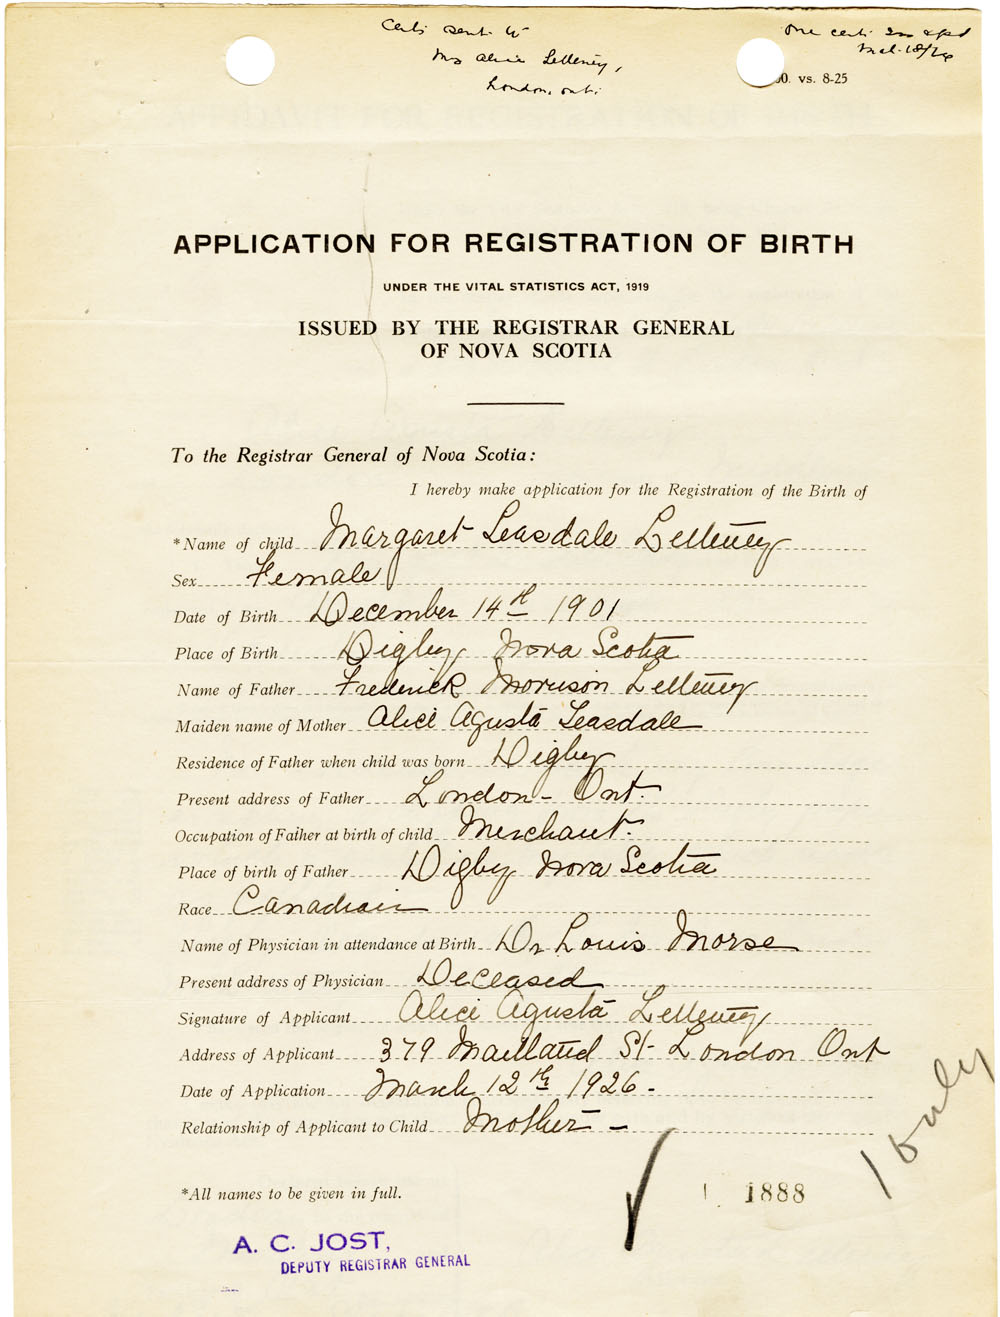 Certi sent to
Mrs Alice Letteney,
London, Ont.
One certi
Mch. 18/26
00. vs. 8-25
APPLICATION FOR REGISTRATION OF BIRTH
UNDER THE VITAL STATISTICS ACT, 1919
ISSUED BY THE REGISTRAR GENERAL
OF NOVA SCOTIA
To the Registrar General of Nova Scotia:
I hereby make application for the Registration of the Birth of
*Name of child Margaret Teasdale Letteney
Sex Female
Date of Birth December 14th 1901
Place of Birth Digby Nova Scotia
Name of Father Frederick Morrison Letteney
Maiden name of Mother Alice Agusta Teasdale
Residence of Father when child was born Digby
Present address of Father London - Ont.
Occupation of Father at birth of child Merchant.
Place of birth of Father Digby Nova Scotia
Race Canadian
Name of Physician in attendance at Birth Dr Louis Morse
Present address of Physician Deceased
Signature of Applicant Alice Agusta Letteney
Address of Applicant 379 Maitland St- London Ont
Date of Application March 12th 1926 -
Relationship of Applicant to Child Mother -
1 only
*All names to be given in full.
1888
A. C. JOST,
DEPUTY REGISTRAR GENERAL